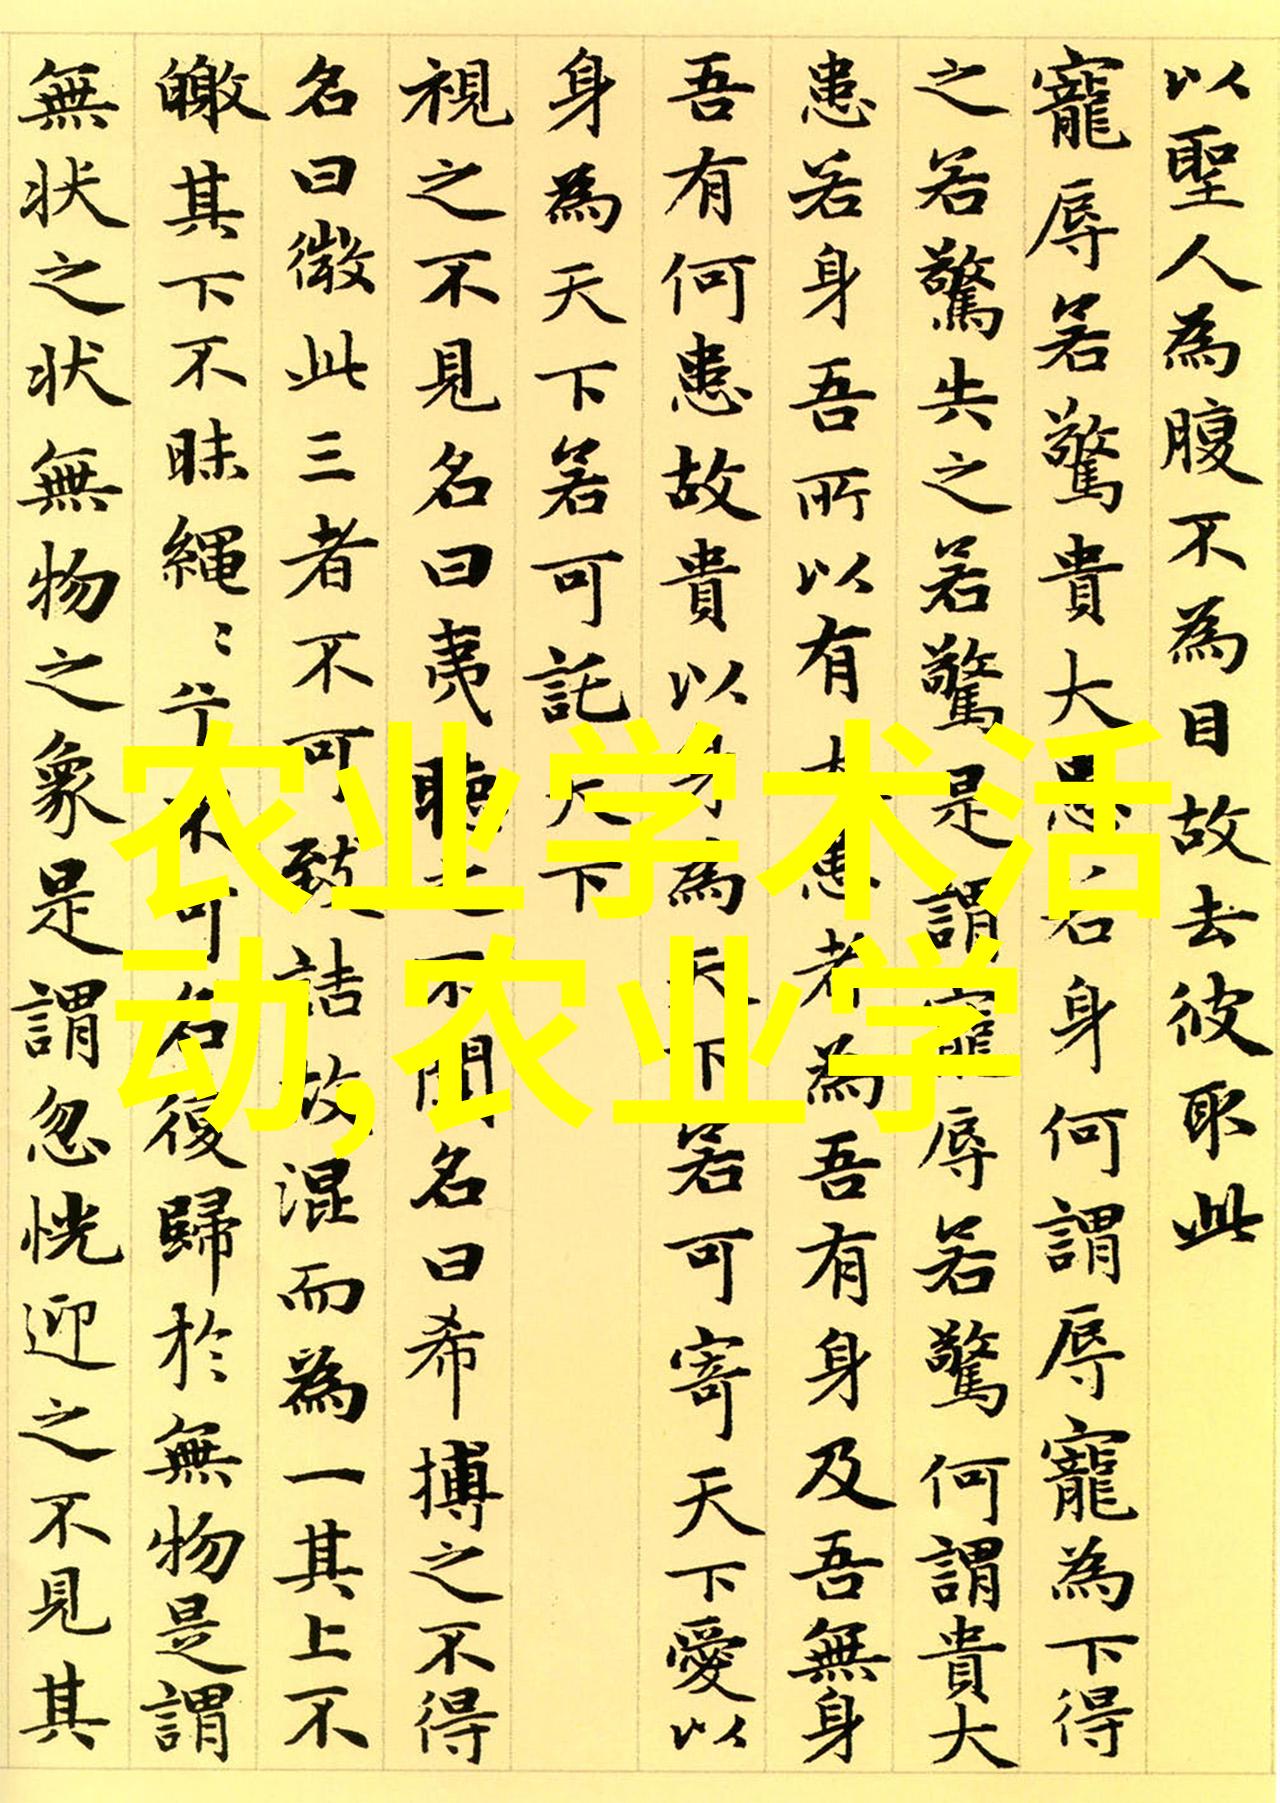 以聖人為腹不為目故去彼取此
寵辱若驚貴大患若身何謂辱寵為下得
之若驚失之若驚是謂寵辱若驚何謂貴大
患若身吾所以有大患者為吾有身及吾無身
吾有何患故貴以身為天下若可寄天下愛以
身為天下若可託天下
視之不見名曰夷聽之不聞名曰希搏之不得
名曰微此三者不可致詰故混而為一其上不
皦其下不昧繩〻兮不可名復歸於無物是謂
無状之状無物之象是謂忽恍迎之不見其
农业学术活
动,农业学